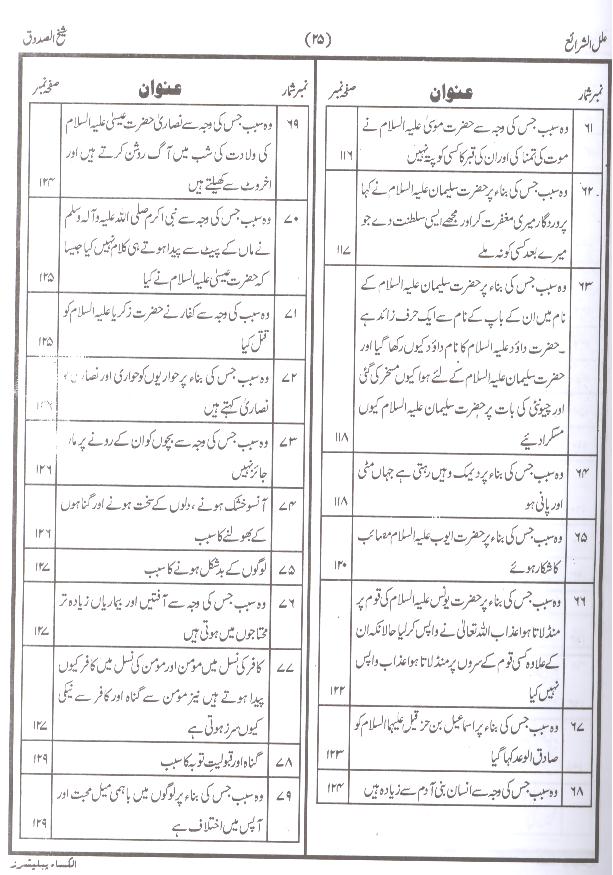 علل الشرائع (۲۵) شیخ الصدوق
نمبر شمار عنوان صفحہ نمبر
۶۱ وہ سبب جس کی وجہ سے حضرت موسیٰ علیہ السلام نے
موت کی تمنا کی اور ان کی قبر کا کسی کو پتہ نہیں ۱۱۶
۶۲ وہ سبب جس کی بناء پر حضرت سلیمان علیہ السلام نے کہا
پروردگار میری مغفرت کر اور مجھے ایسی سلطنت دے جو
میرے بعد کسی کو نہ ملے ۱۱۷
۶۳ وہ سبب جس کی بناء پر حضرت سلیمان علیہ السلام کے
نام میں ان کے باپ کے نام سے ایک حرف زائد ہے
۔ حضرت داؤد علیہ السلام کا نام داؤد کیوں رکھا گیا اور
حضرت سلیمان علیہ السلام کے لئے ہوا کیوں مسخر کی گئی
اور چیونٹی کی بات پر حضرت سلیمان علیہ السلام کیوں
مسکرا دئیے ۱۱۸
۶۴ وہ سبب جس کی بناء پر دیمک وہیں رہتی ہے جہاں مٹی
اور پانی ہو ۱۱۸
۶۵ وہ سبب جس کی بناء پر حضرت ایوب علیہ السلام مصائب
کا شکار ہوئے ۱۲۰
۶۶ وہ سبب جس کی بناء پر حضرت یونس علیہ السلام کی قوم پر
منڈلاتا ہوا عذاب اللہ تعالیٰ نے واپس کر لیا حالانکہ ان
کے علاوہ کسی قوم کے سروں پر منڈلاتا ہوا عذاب واپس
نہیں کیا ۱۲۲
۶۷ وہ سبب جس کی بناء پر اسماعیل بن حزقیل علیہما السلام کو
صادق الوعد کہا گیا ۱۲۳
۶۸ وہ سبب جس کی وجہ سے انسان بنی آدم سے زیادہ ہیں ۱۲۴
نمبر شمار عنوان صفحہ نمبر
۶۹ وہ سبب جس کی وجہ سے نصاریٰ حضرت عیسیٰ علیہ السلام
کی ولادت کی شب میں آگ روشن کرتے ہیں اور
اخروٹ سے کھیلتے ہیں ۱۲۴
۷۰ وہ سبب جس کی وجہ سے نبی اکرم صلی اللہ علیہ و آلہ وسلم
نے ماں کے پیٹ سے پیدا ہوتے ہی کلام نہیں کیا جیسا
کہ حضرت عیسیٰ علیہ السلام نے کیا ۱۲۵
۷۱ وہ سبب جس کی وجہ سے کفار نے حضرت زکریا علیہ السلام کو
قتل کیا ۱۲۵
۷۲ وہ سبب جس کی بناء پر حواریوں کو حواری اور نصاریٰ
نصاریٰ کہتے ہیں
۷۳ وہ سبب جس کی وجہ سے بچوں کو ان کے رونے پر مارنا
جائز نہیں ۱۲۶
۷۴ آنسو خشک ہونے ، دلوں کے سخت ہونے اور گناہوں
کے بھولنے کا سبب ۱۲۶
۷۵ لوگوں کے بدشکل ہونے کا سبب ۱۲۷
۷۶ وہ سبب جس کی وجہ سے آفتیں اور بیماریاں زیادہ تر
محتاجوں میں ہوتی ہیں ۱۲۷
۷۷ کافر کی نسل میں مومن اور مومن کی نسل میں کافر کیوں
پیدا ہوتے ہیں نیز مومن سے گناہ اور کافر سے نیکی
کیوں سرزد ہوتی ہے ۱۲۷
۷۸ گناہ اور قبولیت توبہ کا سبب ۱۲۹
۷۹ وہ سبب جس کی بناء پر لوگوں میں باہمی میل محبت اور
آپس میں اختلاف ہے ۱۲۹
الکساء پبلیشرز